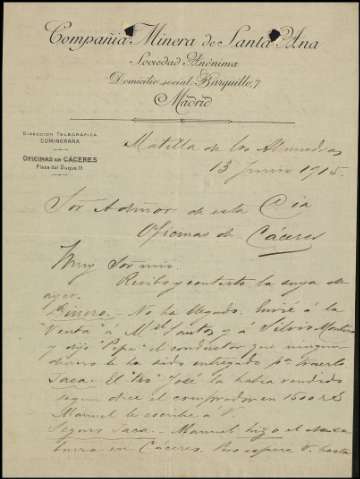 Compañía Minera de Santa Ana
Sociedad Anónima
Domicilio social: Barquillo, 7
Madrid
DIRECCIÓN TELEGRÁFICA
COMINERANA
OFICINAS EN CÁCERES
Plaza del Duque 11
Matilla de los Almendros
13 Junio 1915.
Sor Admor de esta Cia
Oficinas de Cáceres
Muy Sor mio:
Recibo y contesto la suya de
ayer.
Dinero.- No ha llegado. Envié á la
"Venta" á Ml. Santos y á Silvio Martin
y dijo "Pepa" el conductor que ningun
dinero le ha sido entregado pa traerlo
Jaca.- El José la habia vendido
segun dice el comprador en 1500 rs
Manuel le escribe á V.
Seguro Jaca.- Manuel hizo el
en Cáceres. V. hasta